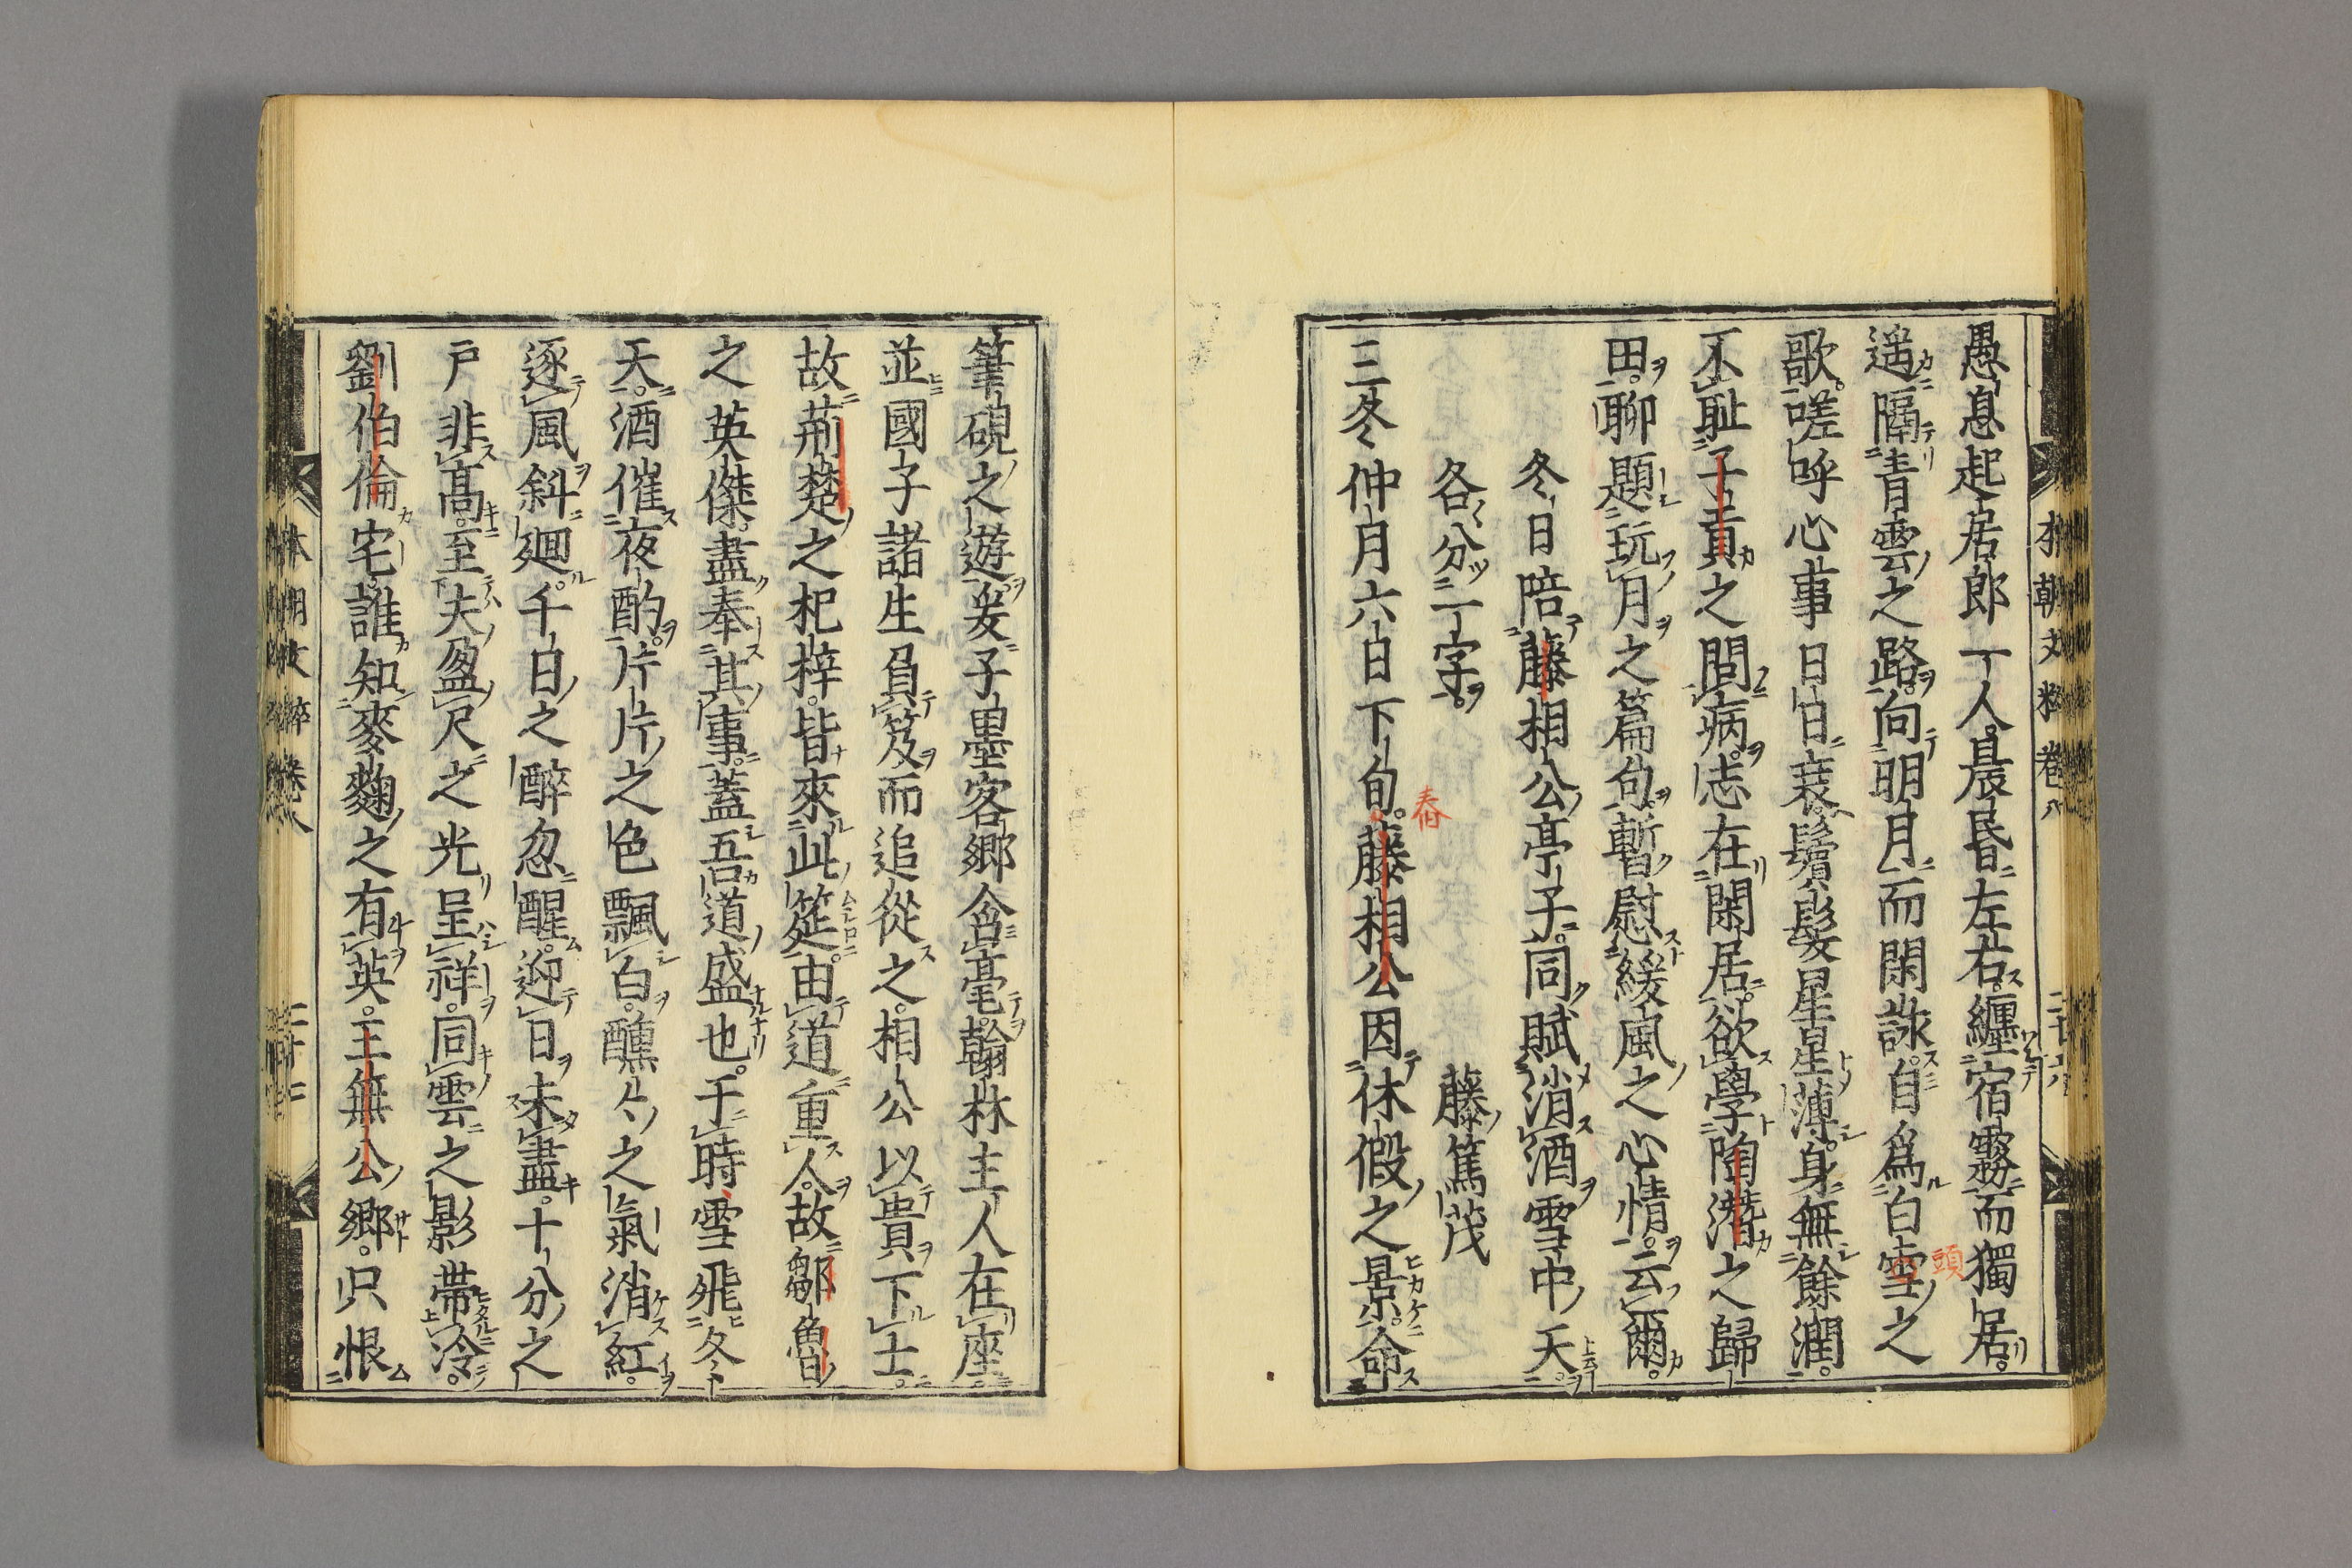 本朝文粹卷八
愚息起居郎一人。晨昏左右。纏宿霧而獨居。
遥隔青雲之路。向明月而閑詠。自爲白雪之
頭
歌。嗟呼心事日日衰。鬢髮星星薄。身無餘潤。
不耻子貢之問病。志在閑居。欲學陶潛之歸
田。聊題玩月之篇句。暫慰緩風之心情。云爾。
冬日陪藤相公亭子。同賦消酒雪中天。
各分一字。
藤篤茂
三冬仲月六日下旬。藤相公因休假之景。命
筆硯之遊。爰子墨客郷含毫。翰林主人在座。
並國子諸生負笈而追從之。相公以貴下士。
故荊楚之杞梓。皆來此筵。由道重人。故鄒魯
之英傑盡奉其事。蓋吾道盛也。于時雪飛冬
天。酒催夜酌。片片之色飄白。醺々之氣消紅。
逐風斜廻。千日之醉忽醒。迎日未盡。十分之
戸非高。至夫盈尺之光呈祥。同雲之影帶冷。
劉伯倫宅。誰知麥麴之有英。王無公郷。只恨
本朝文粹卷八